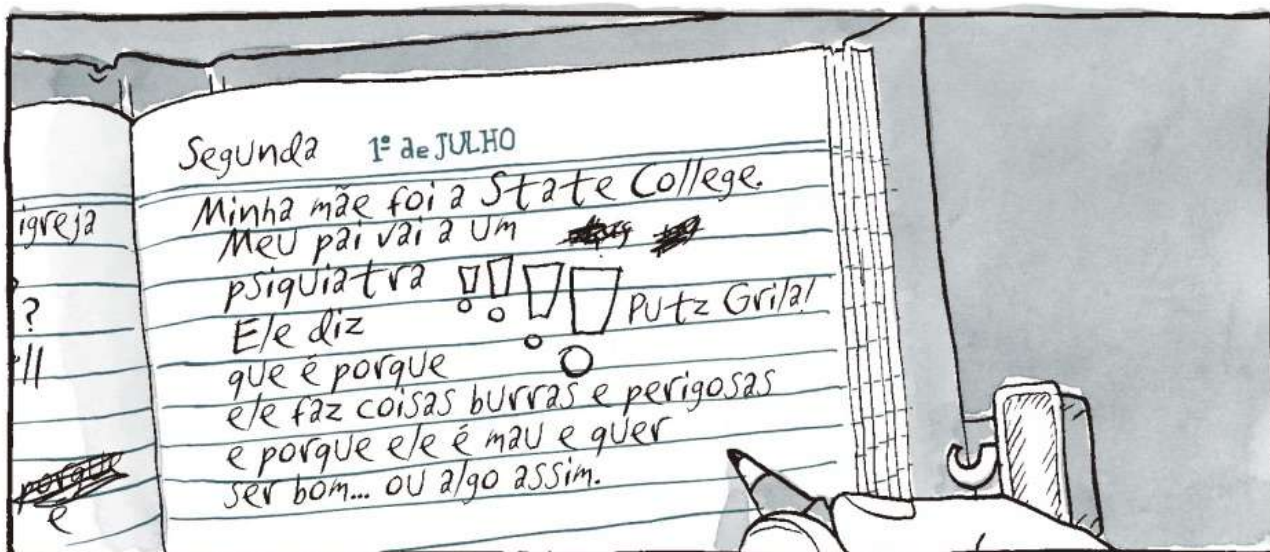 igreja
?
ll
porque
e
Segunda 1º de JULHO
Minha mãe foi a State College.
Meu pai vai a um
psiquiatra !!!! Putz Grila!
Ele diz
que é porque
ele faz coisas burras e perigosas
e porque ele é mau e quer
ser bom... ou algo assim.